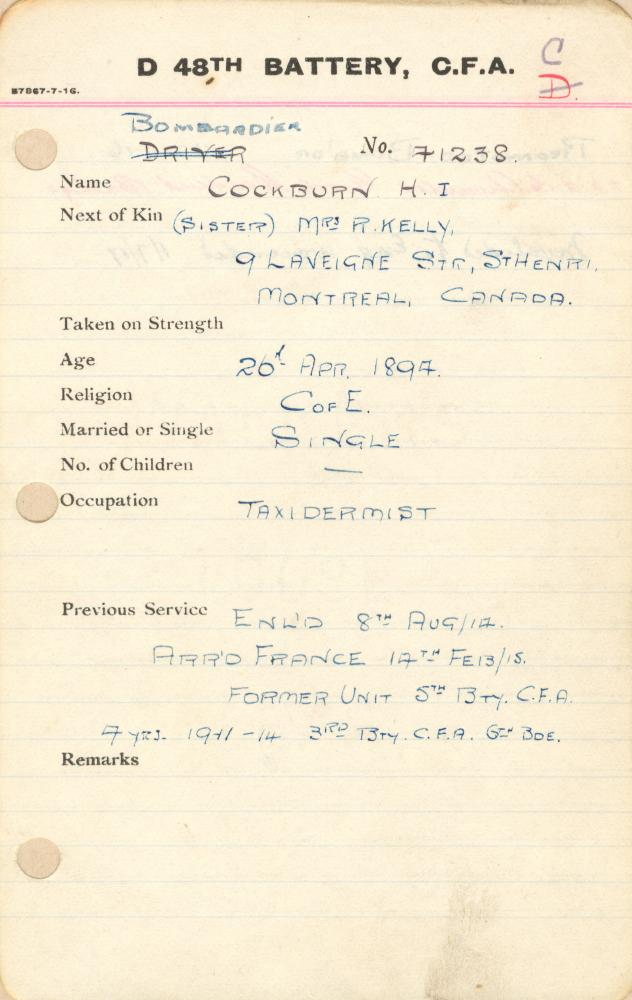 D 48TH BATTERY, C.F.A.
C
D.
B7867-7-16.
BOMBARDIER
DRIVER No. 41238.
Name COCKBURN H. I
Next of Kin (SISTER) MRS R. KELLY,
9 LAVEIGNE STR, ST HENRI,
MONTREAL, CANADA.
Taken on Strength
Age 26d APR. 1894.
Religion C of E.
Married or Single SINGLE
No. of Children —
Occupation TAXIDERMIST
Previous Service ENL'D 8TH AUG/14.
ARR'D FRANCE 14TH FEB/15.
FORMER UNIT 5TH BTY. C.F.A.
4 YRS. 1911-14 3RD BTY. C.F.A. 6TH BDE.
Remarks